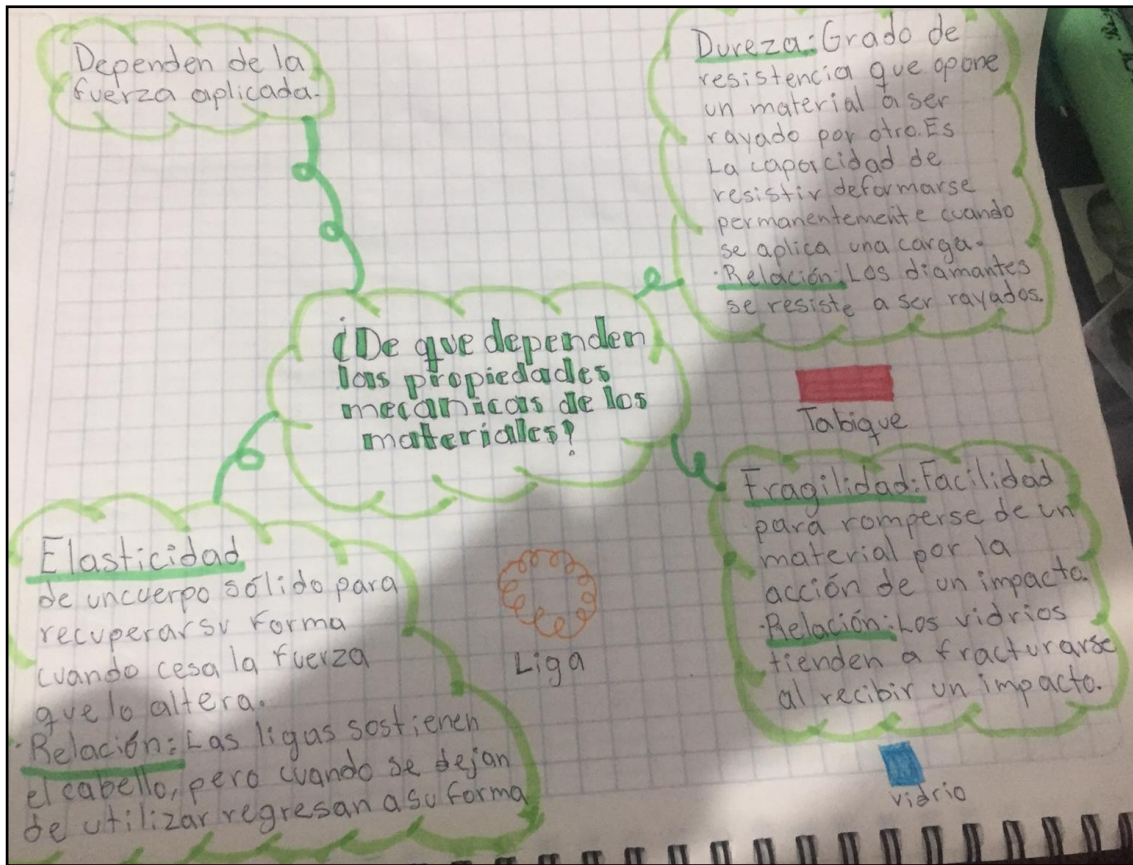 Dependen de la
fuerza aplicada.
Dureza: Grado de
resistencia que opone
un material a ser
rayado por otro. Es
La capacidad de
resistir deformarse
permanentemente cuando
se aplica una carga.
·Relación: Los diamantes
se resiste a ser rayados.
¿De que dependen
las propiedades
mecanicas de los
materiales?
Tabique
Fragilidad: Facilidad
para romperse de un
material por la
acción de un impacto.
·Relación: Los vidrios
tienden a fracturarse
al recibir un impacto.
vidrio
Elasticidad
de uncuerpo sólido para
recuperarsu forma
cuando cesa la fuerza
que lo altera.
·Relación: Las ligas sostienen
el cabello, pero cuando se dejan
de utilizar regresan a su forma
Liga